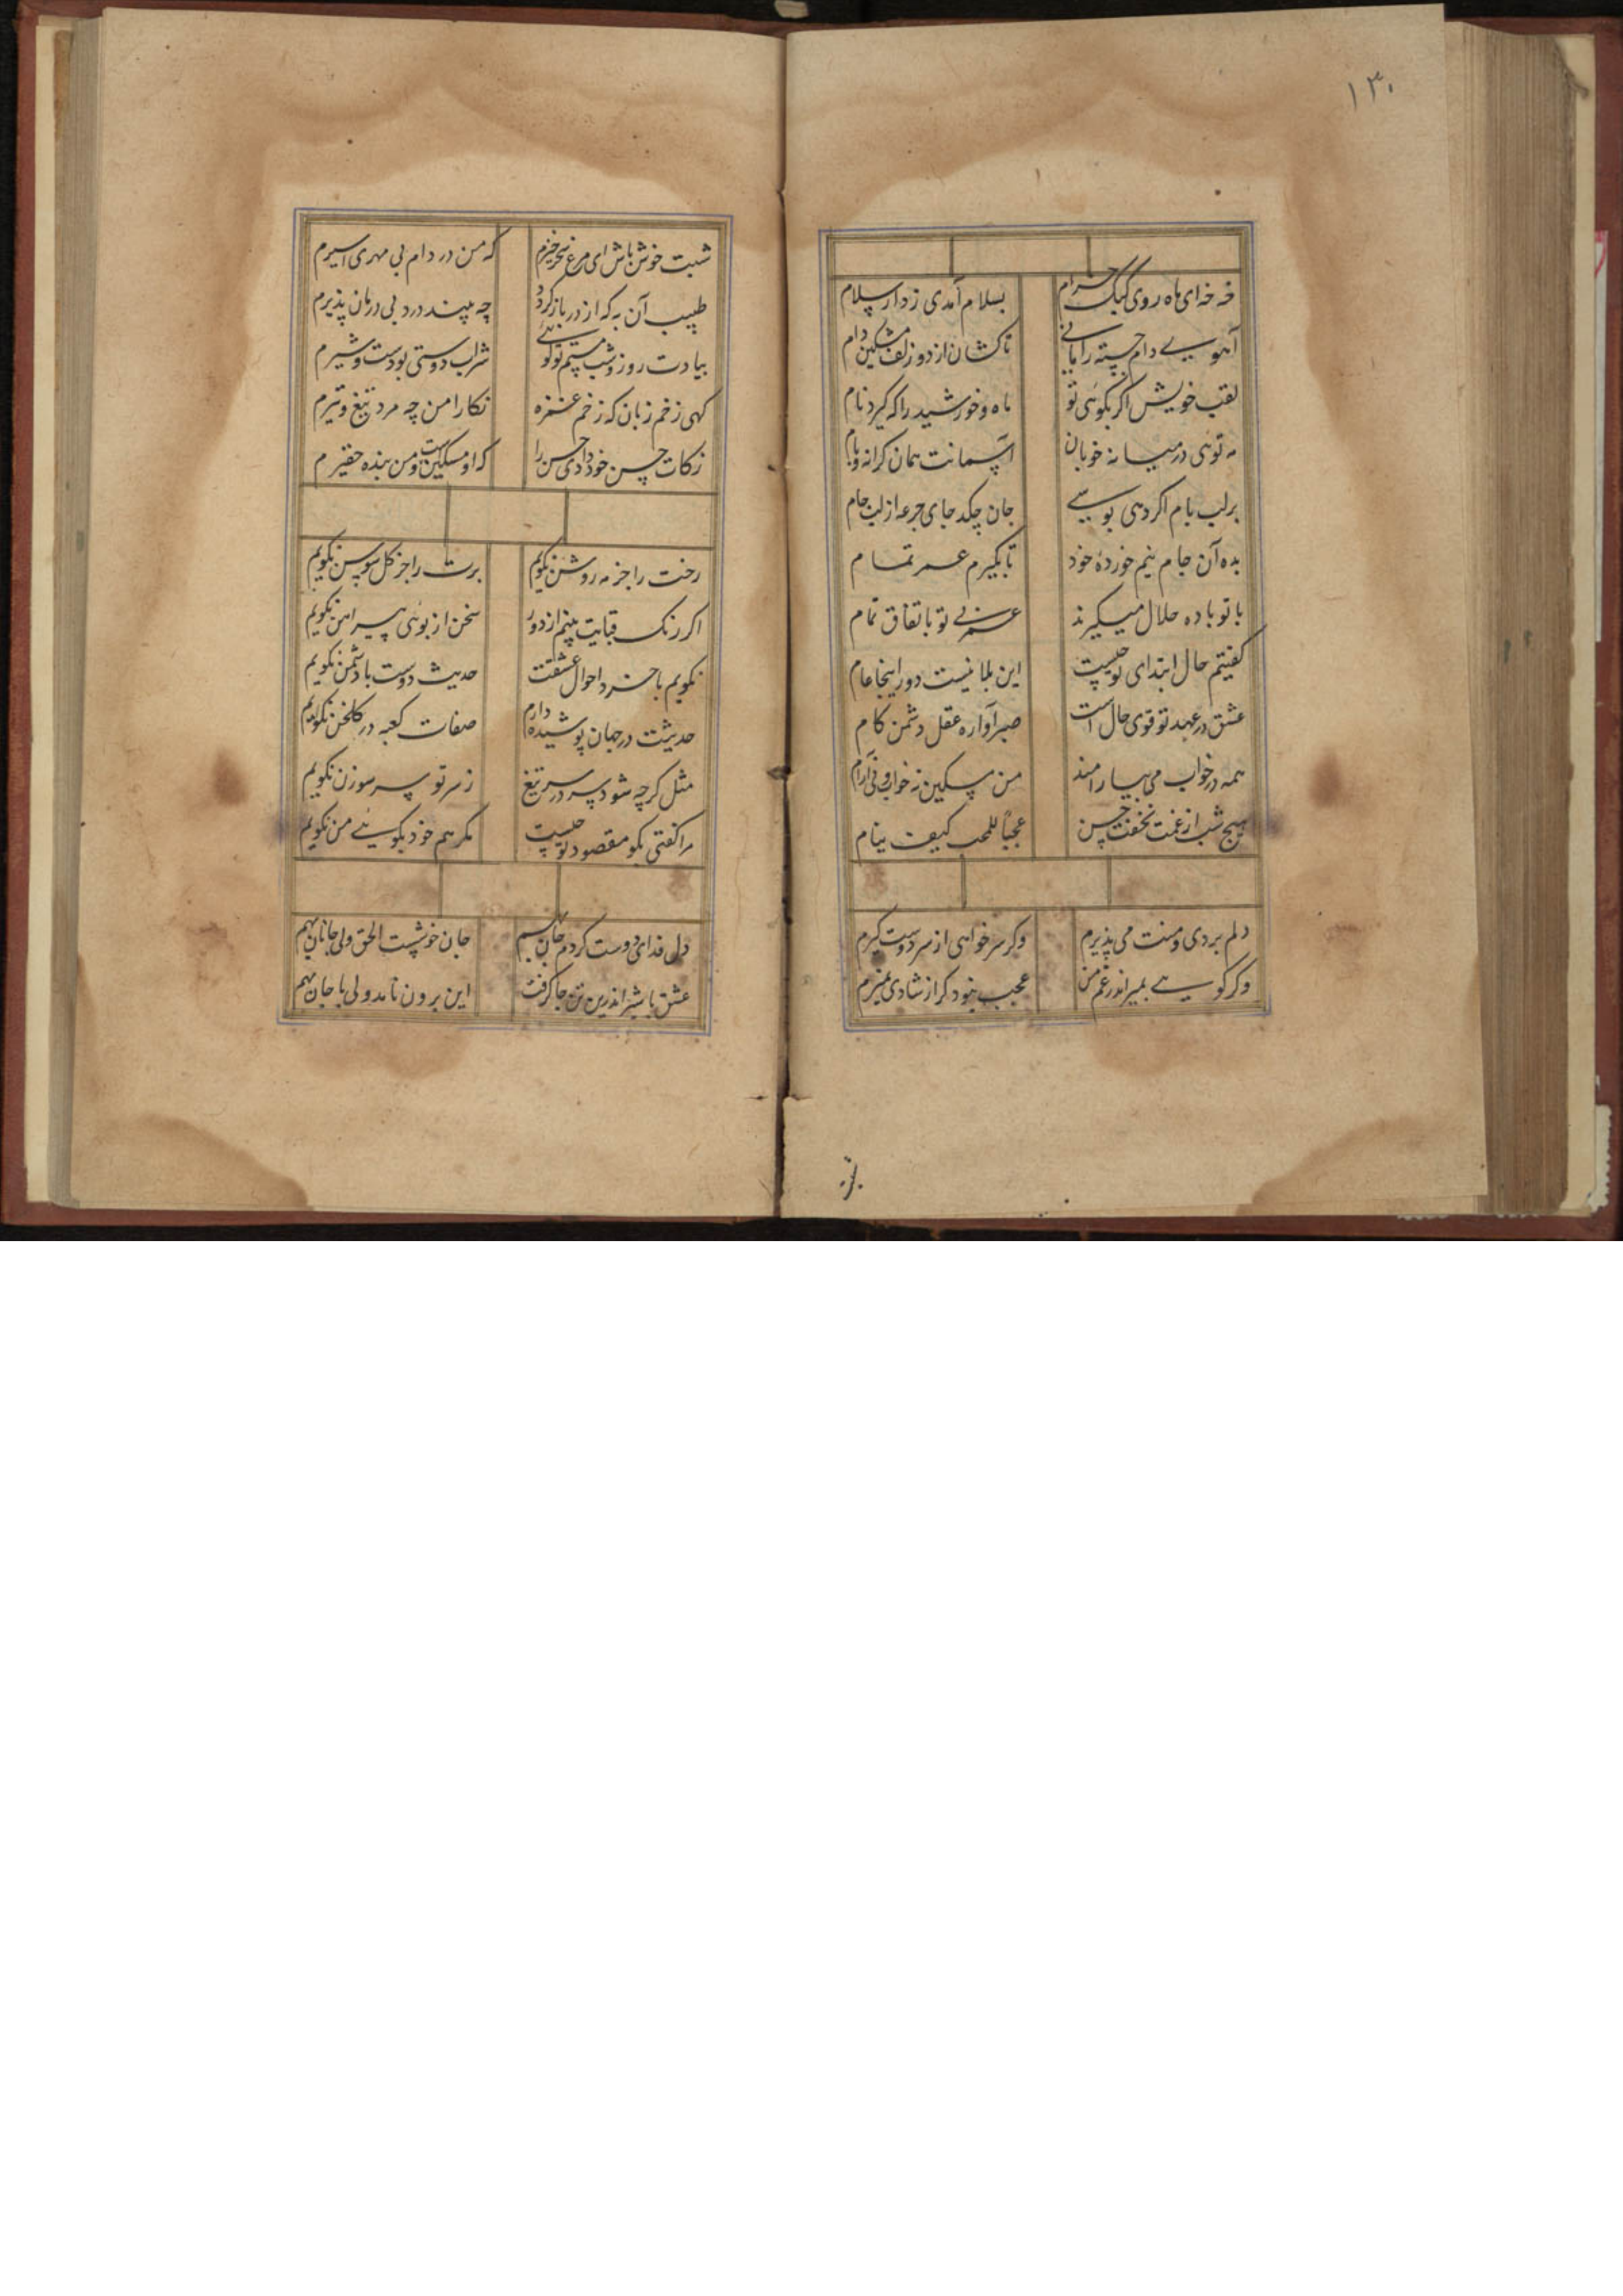 ۱۳۰
خه خه ای ماه روی کبک خرام بسلام آمدی ز دار سلام
آهویی دام جسته را مانی تا کشان از دو زلف مشکین دام
لقب خویش اکر بکوئی تو ماه و خورشید را که کیرد نام
مه توئی در میانه خوبان آسمانت همان کرانه و بام
بر لب بام اکر دهی بوسی جان چکد جای جرعه از لب جام
بده آن جام نیم خورده خود تا بکیرم عمر تمام
با تو باده حلال میکیرند عمر بی تو باتفاق تمام
کفتیم حال ابتدای تو چیست این بلا نیست دور اینجا عام
عشق در عهد تو قوی حال است صبر آواره عقل دشمن کام
همه در خواب می بیارامند من مسکین نه خواب و نی آرام
هیچ شب از غمت نخفت حسن عجبا للمحب کیف ینام
دلم بردی و منت می پذیرم وکر سر خواهی از سر دوست کیرم
وکر کویی بمیر اندر غم من عجب نبود کر از شادی بمیرم
شبت خوش باش ای مرغ سحرخیزم که من در دام بی مهری اسیرم
طبیب آن به که از در باز کردد چه بیند درد بی درمان پذیرم
بیادت روز و شب مستم تو کوئی شراب دوستی بودست و شیرم
کهی زخم زبان که زخم غمزه نکارا من چه مرد تیغ و تیرم
زکات حسن خود دادی حسن را که او مسکین است و من بنده حقیرم
رخت را جز مه روشن نکویم برت را جز کل سوسن نکویم
اکر رنک قبایت بینم از دور سخن از بوئی پیراهن نکویم
نکویم با خرد احوال عشقت حدیث دوست با دشمن نکویم
حدیثت در جهان پوشیده دارم صفات کعبه در کلخن نکویم
مثل کرچه شود سر در سر تیغ ز سر تو سر سوزن نکویم
مرا کفتی بکو مقصود تو چیست مکر هم خود بکوئی من نکویم
دل فدای دوست کردم جان هم جان خوشست الحق ولی جانان بهم
عشق باشیر اندرین تن جا کرفت این برون نامد ولی با جان بهم